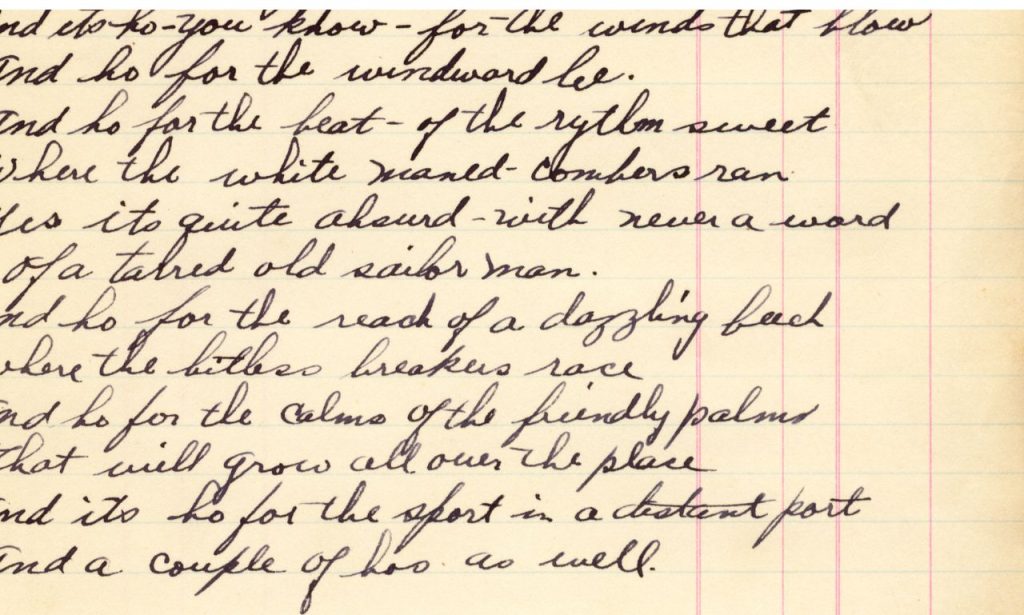 and its-ho-you know - for the winds that blow
and ho for the windward lee.
and ho for the beat - of the rythm sweet
where the white maned - combers ran
yes its quite absurd - with never a word
of a tarred old sailor man.
and ho for the reach of a dazzling beech
where the bitless breakers race
and ho for the calms of the friendly palms
that will grow all over the place
and its ho for the sport in a distant port
and a couple of hos as well.